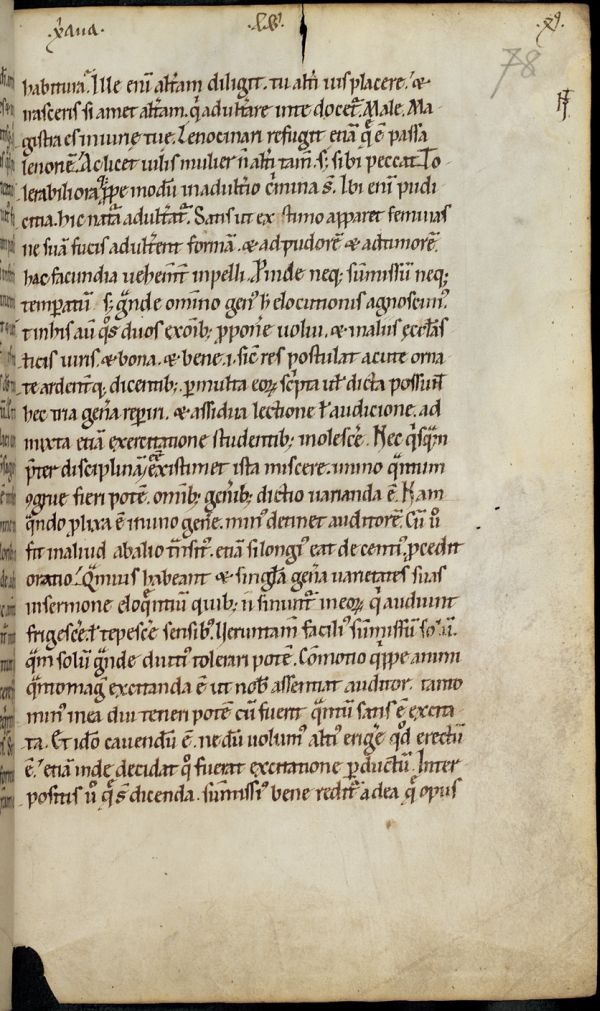 .l.w.
78
habitura. Ille eni̅ alt̅am diligit. tu alt̅i uis placere. ⁊
irasceris si amet alt̅am. q̅ adult̅are in te docet̅. Male. Ma
gistra es iniurie tue. Lenocinari refugit etia̅ q̅ e̅ passa
lenone̅. Ac licet uilis mulier n̅ alt̅i tam̅. s; sibi peccat. To
lerabiliora q̅ppe modu̅ in adult̅io c̅mina s̅. Ibi eni̅ pudi
citia. hic nat̅a adult̅at̅. Satis ut existimo apparet feminas
ne sua̅ fucis adult̅ent forma̅. ⁊ ad pudore̅ ⁊ ad timore̅.
hac facundia uehem̅t inpelli. Proinde neq; summissu̅ neq;
temperatu̅ s; g̅nde omnino gen᾽ h̅ elocutionis agnoscim᾽.
t in his au̅ q̅s duos ex om̅ib; p̅pone̅ uolui. ⁊ in aliis eccl̅as
ticis uiris. ⁊ bona. ⁊ bene .i. sic̅ res postulat acute orna
te ardent̅ q; dicentib;. p multa eoꝝ sc̅pta ul̅ dicta possun̅t
hec tria gen̅a reperiri. ⁊ assidua lectione ł audicione. ad
iuxta etia̅ exercitatione studentib; inolesce̅. Nec q̅sq̅m
p̅ter disciplina̅ ee̅ existimet ista miscere. immo q̅ntum
ꝯgrue fieri potẽ. omib; gen̅ib; dictio uarianda e̅. Nam
q̅ndo plixa e̅ in uno gen̅e. min᾽ detinet auditore̅. Cu̅ u̅
fit in aliud ab alio t̅nsit᾽. etia̅ si longi᾽ eat decenti᾽ p̅cedit
oratio. Q̅mius habeant ⁊ sing̅la gen̅a uarietates suas
in sermone eloq̅ntiu̅ quib; n̅ sinunt᾽ in eoꝝ q̅ audiunt
frigesce̅. ł tepesce̅ sensib᾽. Ueruntam̅ facili᾽ summissu̅ solu̅.
q̅m solu̅ g̅nde diuti᾽ tolerari pote̅. Co̅motio q̅ppe animi
q̅nto mag̅ excitanda e̅ ut nob̅ assentiat auditor. tanto
min᾽ in ea diu teneri pote̅ cu̅ fuerit q̅ntu̅ satis e̅ excita
ta. Et ido̅ cauendu̅ e̅. ne du̅ uolum᾽ alti᾽ erige̅ q̅d erectu̅
e̅. etia̅ inde decidat q᾽ fuerat excitatione pductu̅. Inter
positis u̅ q̅ s̅ dicenda. summissi᾽ bene redit̅ ad ea q̅ opus